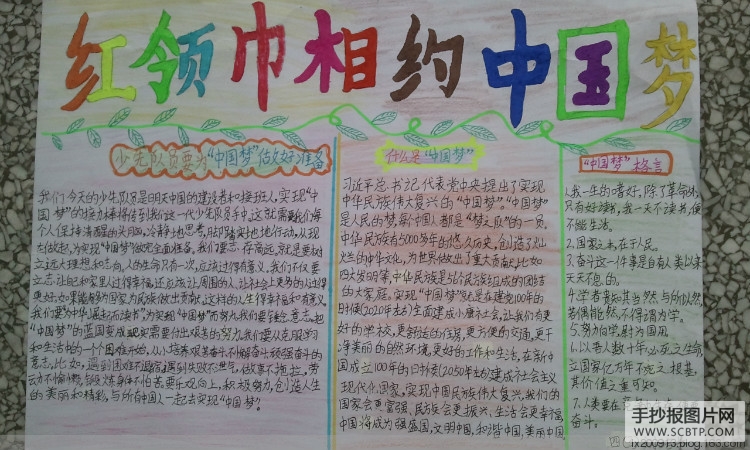 红领巾相约中国梦
少先队员要为“中国梦”做好准备
我们今天的少先队员是明天中国的建设者和接班人,实现“中
国梦”的接力棒将传到我们这一代少先队员手中,这就需要我们每
个人保持清醒的头脑,冷静地思考,脚踏实地地行动,从现
在做起,为实现“中国梦”做完全面准备,我们要志存高远,就是要树
立远大理想和志向,人的生命只有一次,应该过得有意义。我们不仅要
立志让自己和家里人过得幸福,还应该让周围的人,让社会上更多的人过得
更好,如果能够为国家为民族做出贡献,这样的人生得幸福和有意义。
我们要为中华崛起而读书”,为实现“中国梦”而努力,我们要锤炼意志,把
“中国梦”的蓝图变成现实需要付出艰苦的努力,我们要从克服学习
和生活中的一个个困难开始,从小培养艰苦奋斗,不懈奋斗顽强奋斗的
意志,比如,遇到困难不退缩,遇到失败不泄气,做事不拖拉,劳
动不怕嫌,锻炼身体不怕苦,要乐观向上,积极努力,创造人生
的美丽和精彩,与所有中国人一起去实现“中国梦”。
什么是“中国梦”
习近平总书记代表党中央提出了实现
中华民族伟大复兴的“中国梦”,“中国梦”
是人民的梦,每个中国人都是“梦之队”的一员,
中华民族有5000多年的悠久历史,创造了灿
烂的中华文化,为世界做出了重大贡献,比如
四大发明等,中华民族是56个民族组成的团结
的大家庭,实现“中国梦”就是在建党100年的
时候(2020年左右)全面建成小康社会,让我们有更
好的学校,更舒适的住房,更方便的交通,更干
净美丽的自然环境,更好的工作和生活,在新中
国成立100年的时候(2050年左右)建成社会主义
现代化国家,实现中国民族伟大复兴,我们的
国家会更富强,民族会更振兴,生活会更幸福,
中国将成为强盛国,文明中国,和谐中国,美丽中国,
“中国梦”格言
人我一生的嗜好,除了革命外,
只有好读书,我一天不读书,便
不能生活。
2.国家之本,在于人民。
3.奋斗这一件事是自有人类以来
天天不息的。
4.学者贵知其当然与所以然,
若偶能然,不得谓为学。
5.努力向学,蔚为国用。
6.以吾人数十年必死之生命,
立国家亿万年不死之根基,
其价值之重可知。
7.人类要在
奋斗。
手抄报图片网
WWW.SCBTP.COM